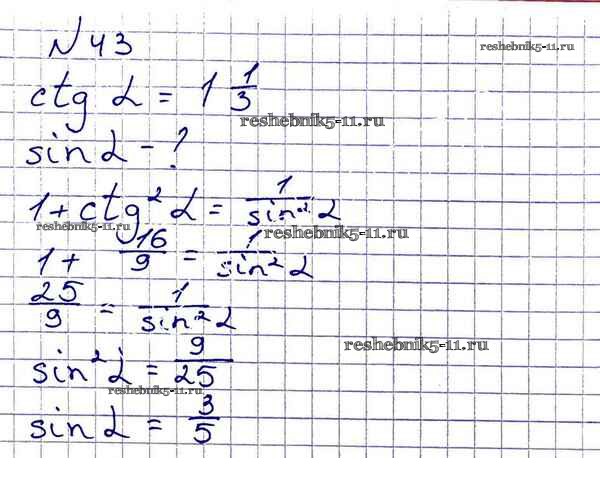 № 43
reshebnik5-11.ru
ctg α = 1 1/3
reshebnik5-11.ru
sin α - ?
1 + ctg² α = 1/sin² α
reshebnik5-11.ru
reshebnik5-11.ru
1 + 16/9 = 1/sin² α
25/9 = 1/sin² α
reshebnik5-11.ru
sin² α = 9/25
reshebnik5-11.ru
sin α = 3/5